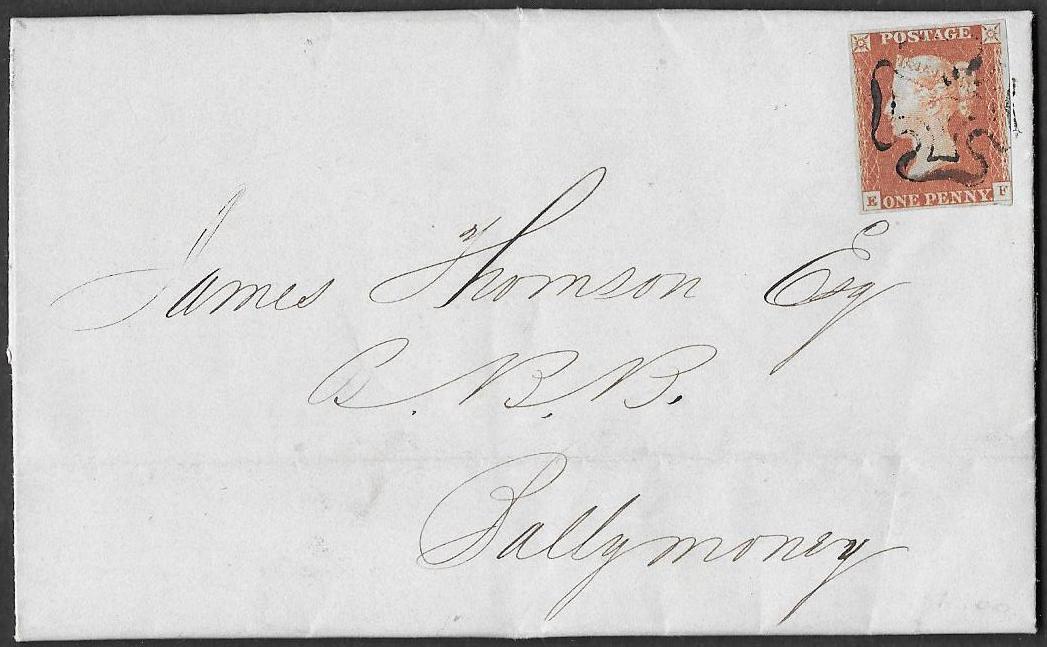 POSTAGE
E ONE PENNY. F
James Thomson Esq
B. B. B.
Ballymoney